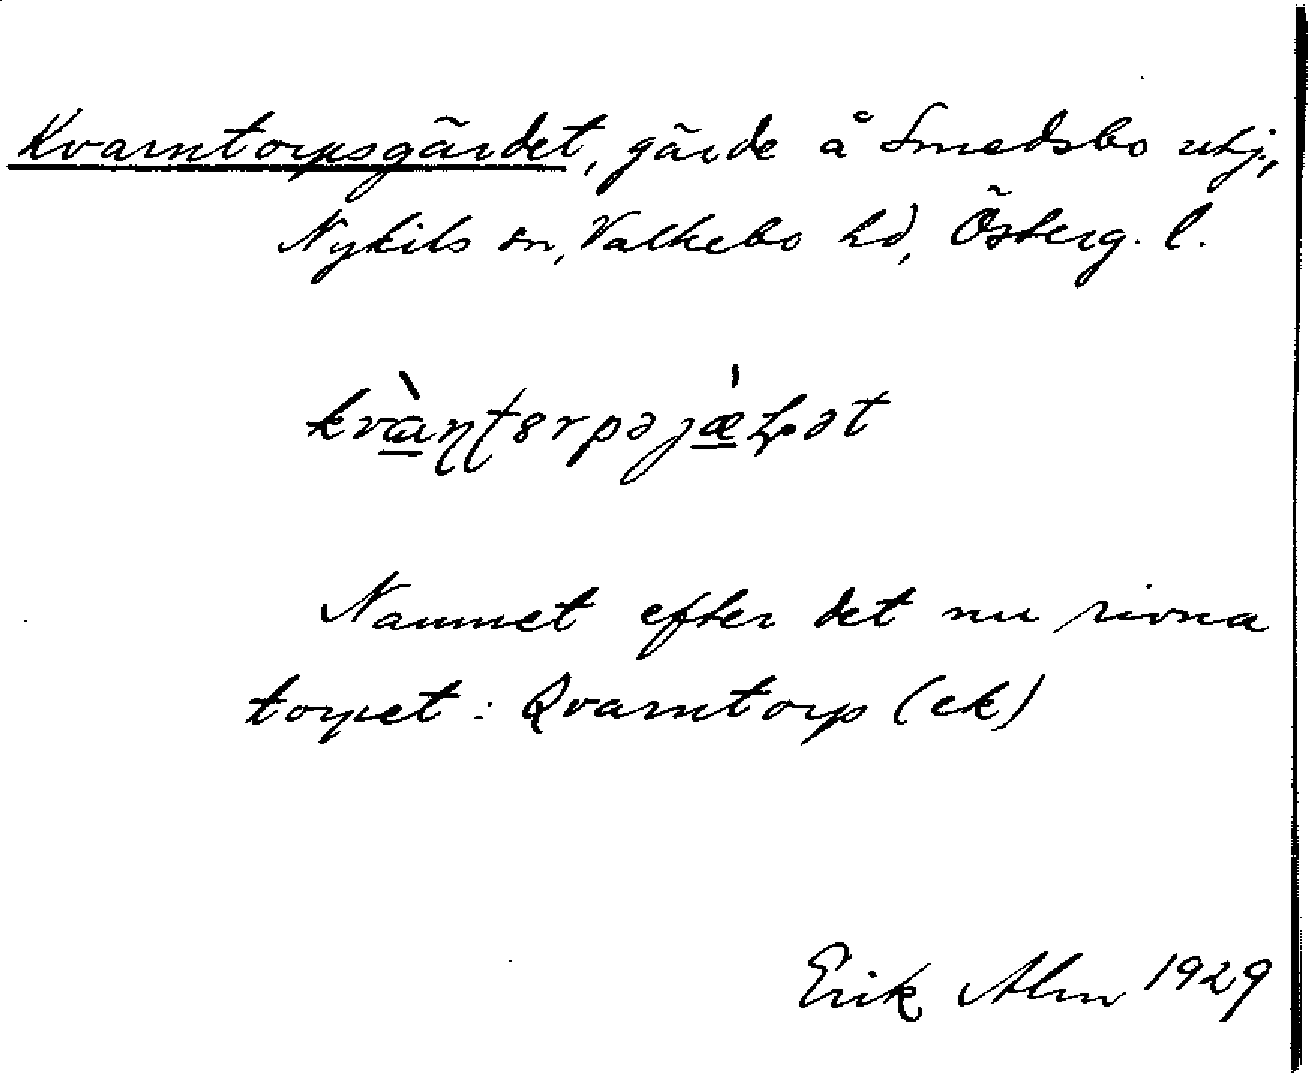 Kvarntorpsgärdet, gärde å Smedsbo utj.,
Nykils sn, Valkebo hd, Österg. l.
Namnet efter det nu rivna
torpet: Qvarntorp (ek)
Erik Alm 1929